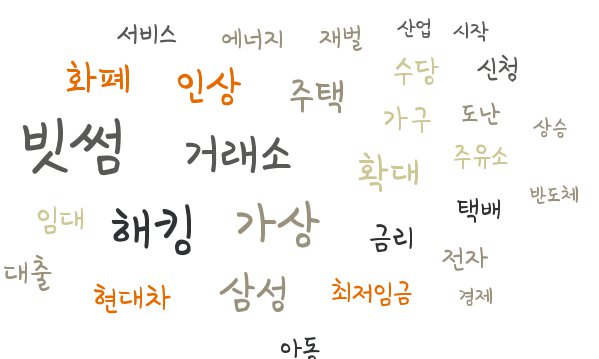 서비스 에너지 재벌 산업 시작
화폐 인상 주택 수당 신청
빗썸 거래소 가구 도난 상승
확대 주유소
임대 해킹 가상 금리 택배 반도체
대출 현대차 삼성 최저임금 전자 경제
아동